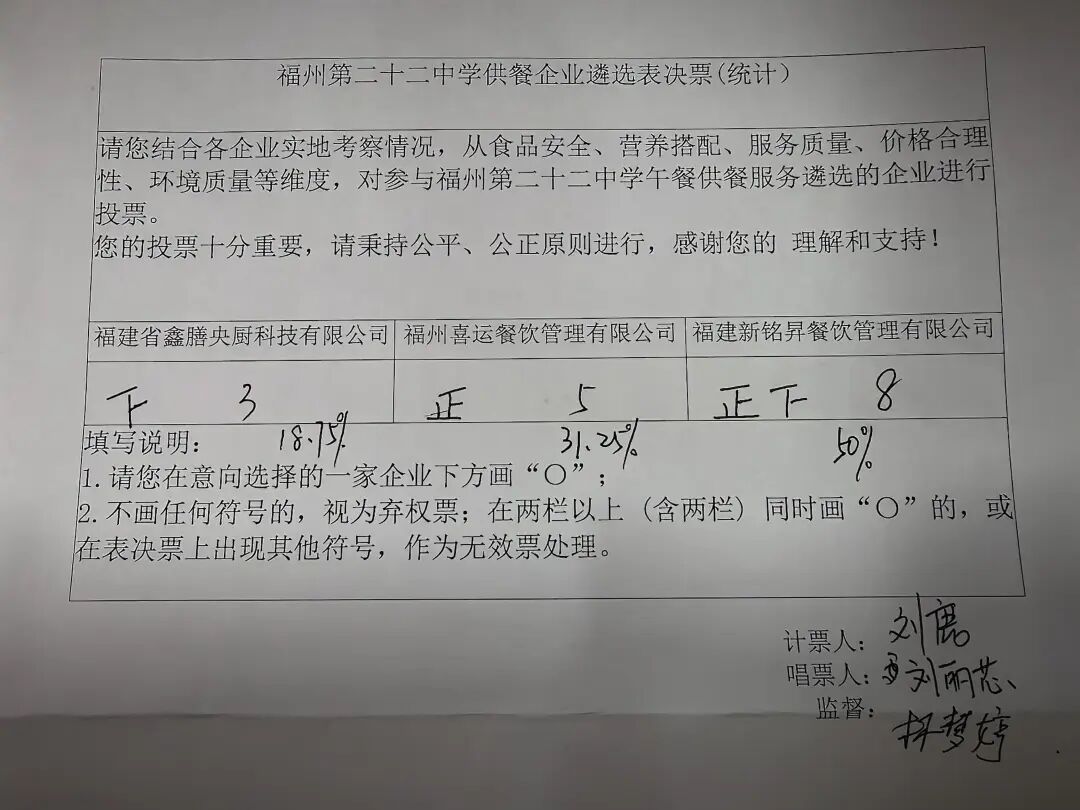 福州第二十二中学供餐企业遴选表决票(统计)
请您结合各企业实地考察情况，从食品安全、营养搭配、服务质量、价格合理
性、环境质量等维度，对参与福州第二十二中学午餐供餐服务遴选的企业进行
投票。
您的投票十分重要，请秉持公平、公正原则进行，感谢您的 理解和支持！
福建省鑫膳央厨科技有限公司 福州喜运餐饮管理有限公司 福建新铭昇餐饮管理有限公司
下 3 正 5 正下 8
填写说明： 18.75% 31.25% 50%
1.请您在意向选择的一家企业下方画“○”；
2.不画任何符号的，视为弃权票；在两栏以上（含两栏）同时画“○”的，或
在表决票上出现其他符号，作为无效票处理。
计票人： 刘
唱票人： 刘丽芯
监督： 梦婷